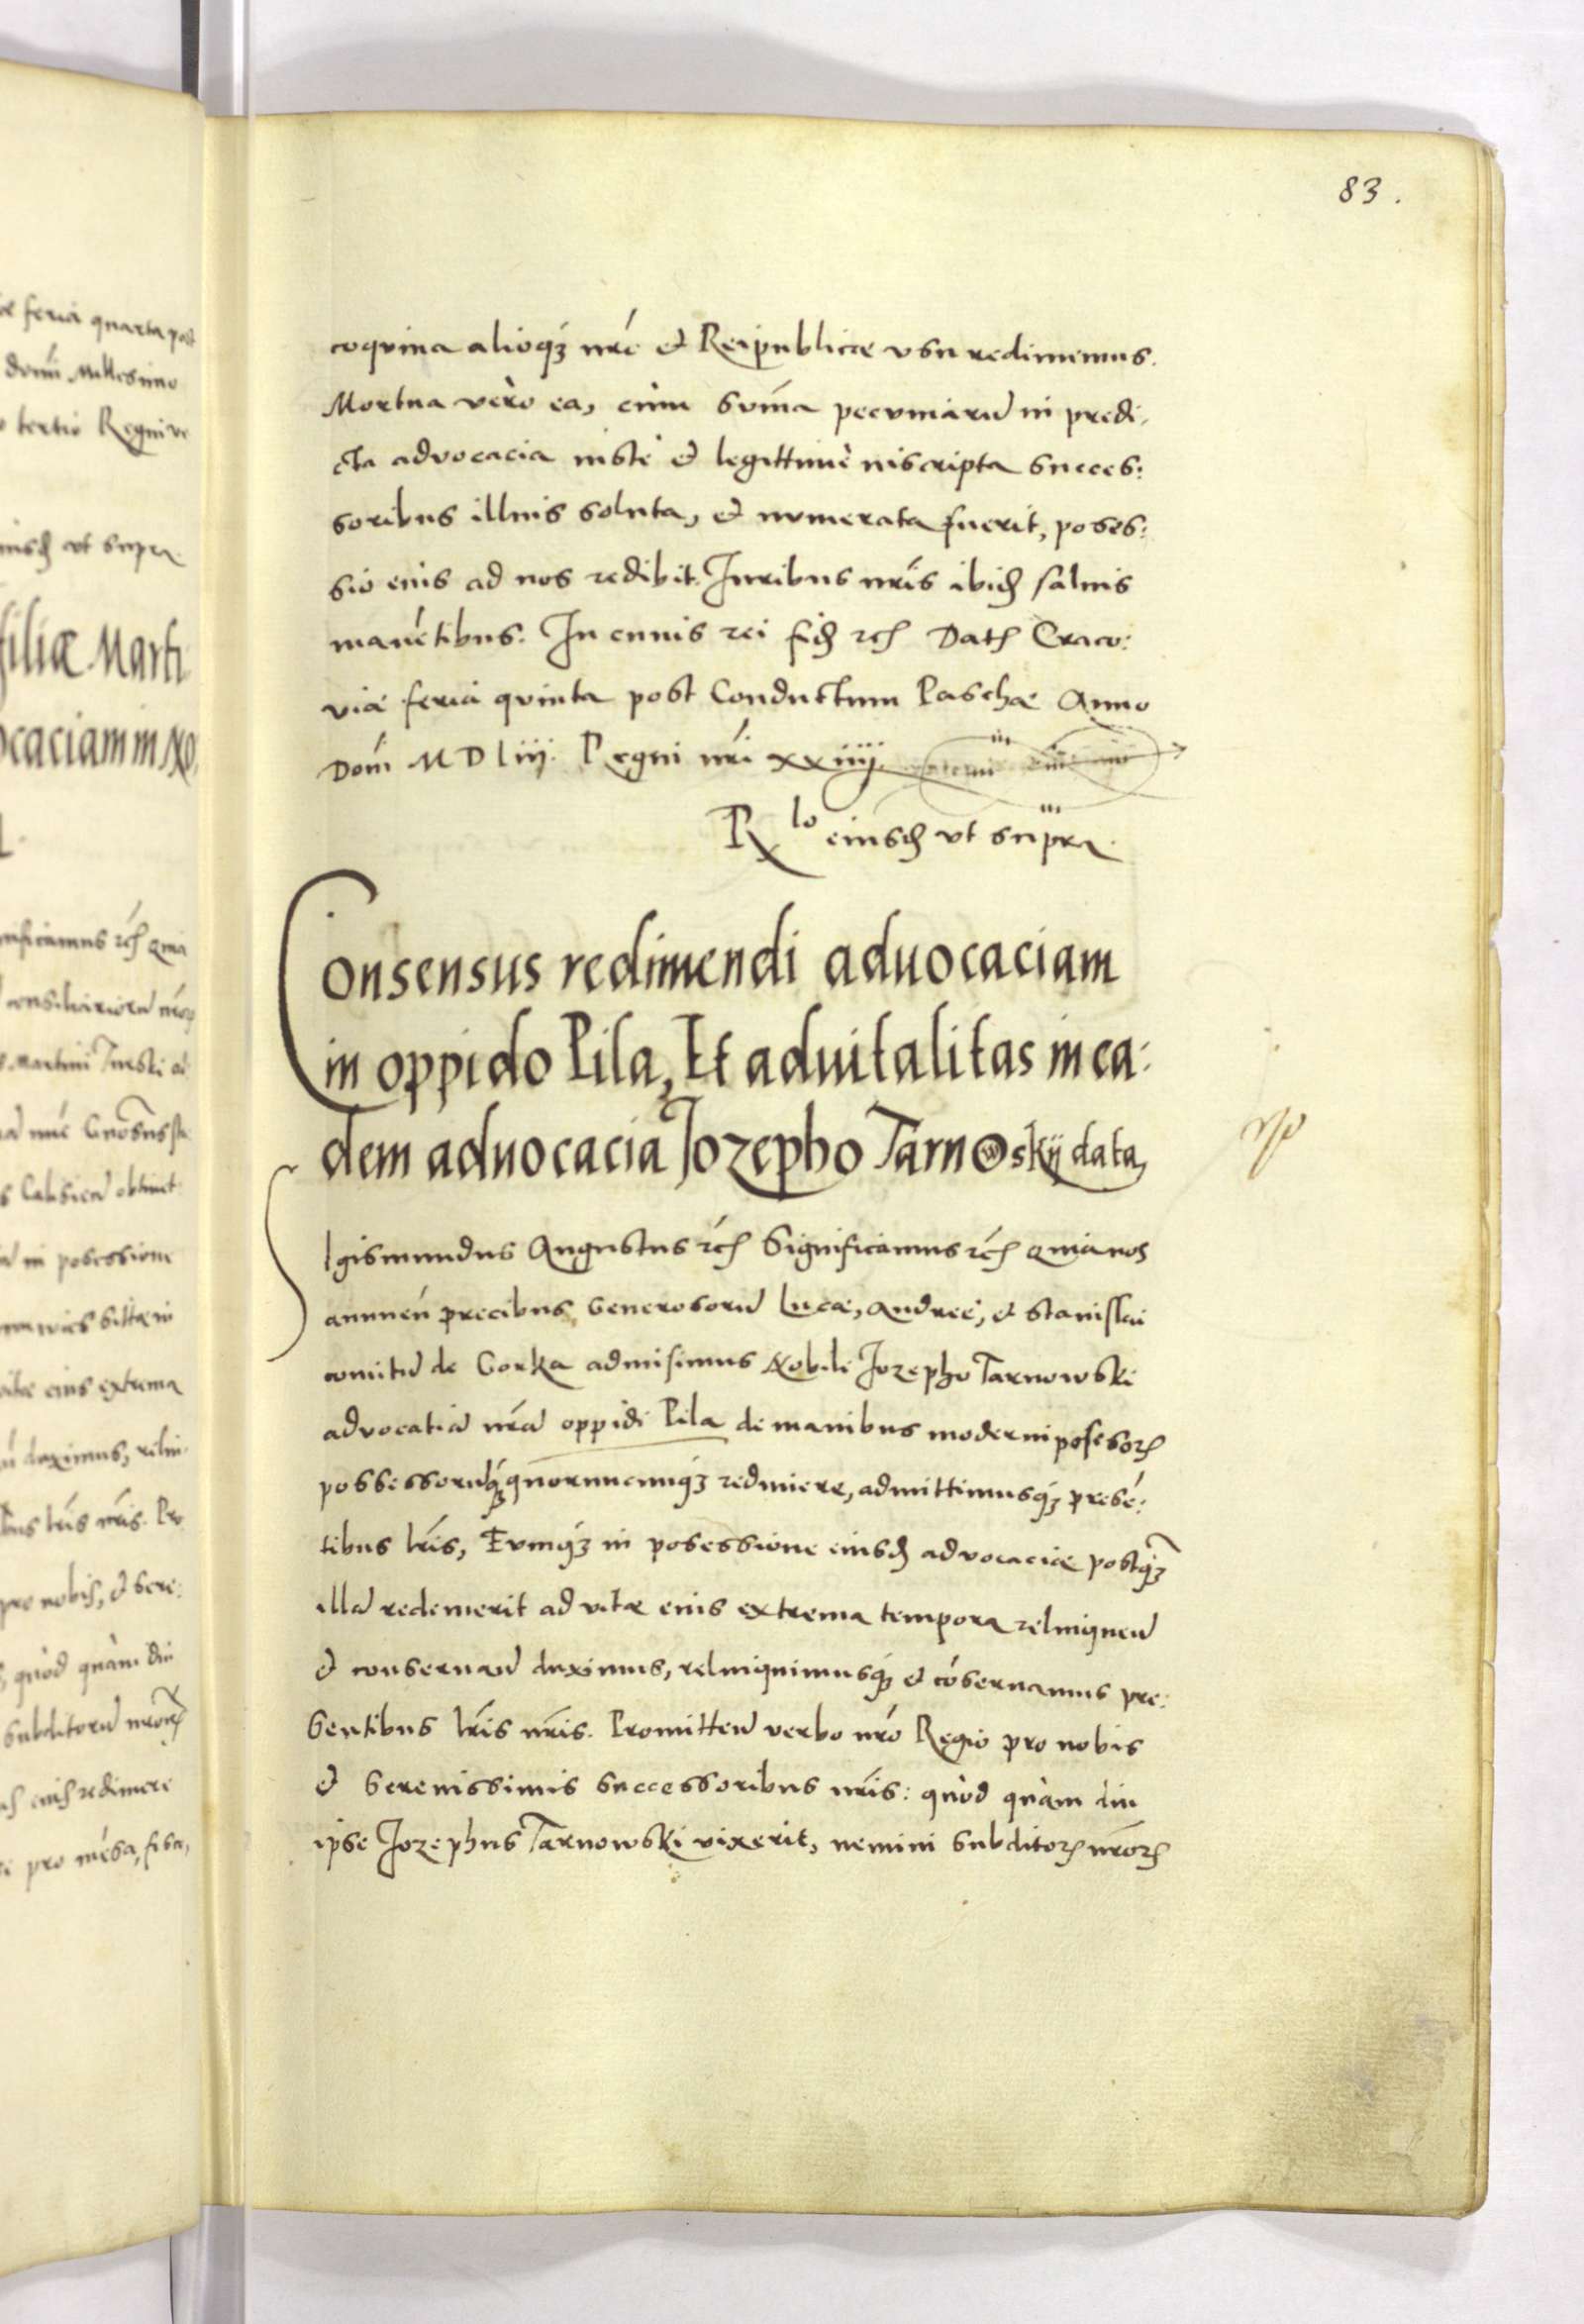 83.
coquina alioq3 nr̃e et Reipublicæ vsu redimemus.
Mortua verò ea, cum sum̃a pecuniarũ in predi,
cta advocacia iustè et legittimè inscripta succes:
soribus illius soluta, et numerata fuerit, poses:
sio eius ad nos redibit. Iuribus nr̃is ibid̃ saluis
manẽtibus. In cuius rei fid̃ rc̃ Dat̃ Craco:
viæ feria quinta post Conductum Paschæ Anno
Dom̃ M D liij. Regni nr̃i xxiiij.
R lo eiusd̃ vt supra.
Consensus redimendi aduocaciam
in oppido Pila, Et aduitalitas in ea:
dem aduocacia Jozepho Tarnowskij data,
SIgismundus Augustus rc̃ Significamus rc̃ Quia nos
annuen̄ precibus Generosorũ Lucæ, Andreę, et Stanislai
comitũ de Gorka admisimus Nobili Jozepho Tarnowski
advocatiã nr̃ã oppidi Pila de manibus moderni posesor̃
possessorũq3 quorumcunq3 redimere, admittimusq3 presẽ:
tibus lr̃is, Eumq3 in posessione eiusd̃ advocaciæ postq3̃
illã redemerit ad vitæ eius extrema tempora relinquen̄
et conseruan̄ duximus, relinquimusq3 et cõseruamus pre:
sentibus lr̃is nr̃is. Promitten̄ verbo nr̃o Regio pro nobis
et Serenissimis successoribus nr̃is: quòd quàm diu
ipse Jozephus Tarnowski vixerit, nemini subditor̃ nr̃or̃